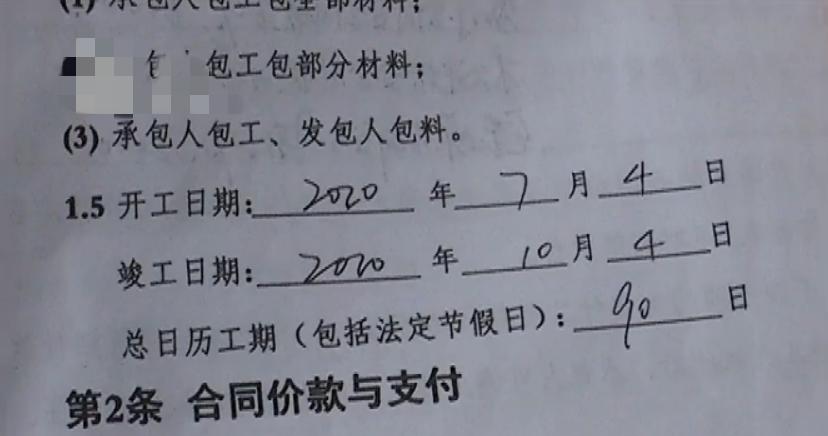 (1) 承包人包工包全部材料；
包工包部分材料；
(3) 承包人包工、发包人包料。
1.5 开工日期：2020 年 7 月 4 日
竣工日期：2020 年 10 月 4 日
总日历工期（包括法定节假日）：90 日
第2条 合同价款与支付